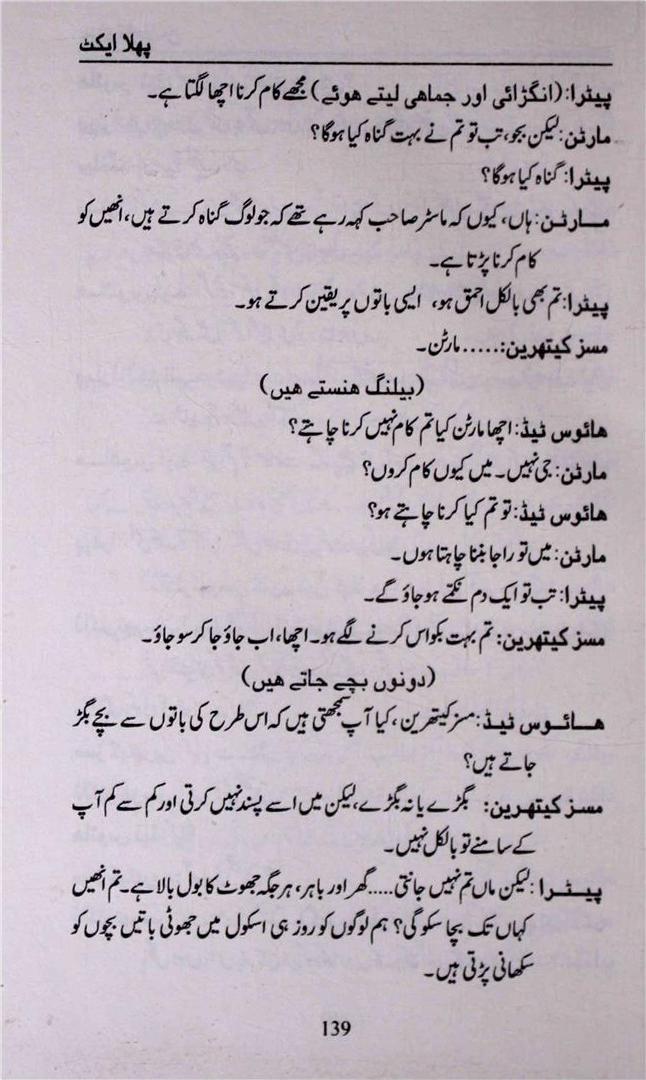 پہلا ایکٹ
پیٹرا: (انگڑائی اور جماھی لیتے ھوئے) مجھے کام کرنا اچھا لگتا ہے۔
مارٹن: لیکن بجو، تب تو تم نے بہت گناہ کیا ہوگا؟
پیٹرا: گناہ کیا ہوگا؟
مارٹن: ہاں، کیوں کہ ماسٹر صاحب کہہ رہے تھے کہ جو لوگ گناہ کرتے ہیں، انھیں کو
کام کرنا پڑتا ہے۔
پیٹرا: تم بھی بالکل احمق ہو، ایسی باتوں پر یقین کرتے ہو۔
مسز کیتھرین: ..... مارٹن۔
(بیلنگ ھنستے ھیں)
ھائوس ٹیڈ: اچھا مارٹن کیا تم کام نہیں کرنا چاہتے؟
مارٹن: جی نہیں۔ میں کیوں کام کروں؟
ھائوس ٹیڈ: تو تم کیا کرنا چاہتے ہو؟
مارٹن: میں تو راجا بننا چاہتا ہوں۔
پیٹرا: تب تو ایک دم نکمّے ہو جاؤ گے۔
مسز کیتھرین: تم بہت بکواس کرنے لگے ہو۔ اچھا، اب جاؤ جا کر سو جاؤ۔
(دونوں بچے جاتے ھیں)
ھائوس ٹیڈ: مسز کیتھرین، کیا آپ سمجھتی ہیں کہ اس طرح کی باتوں سے بچے بگڑ
جاتے ہیں؟
مسز کیتھرین: بگڑے یا نہ بگڑے، لیکن میں اسے پسند نہیں کرتی اور کم سے کم آپ
کے سامنے تو بالکل نہیں۔
پیٹرا: لیکن ماں تم نہیں جانتی..... گھر اور باہر، ہر جگہ جھوٹ کا بول بالا ہے۔ تم انھیں
کہاں تک بچا سکو گی؟ ہم لوگوں کو روز ہی اسکول میں جھوٹی باتیں بچوں کو
سکھانی پڑتی ہیں۔
139